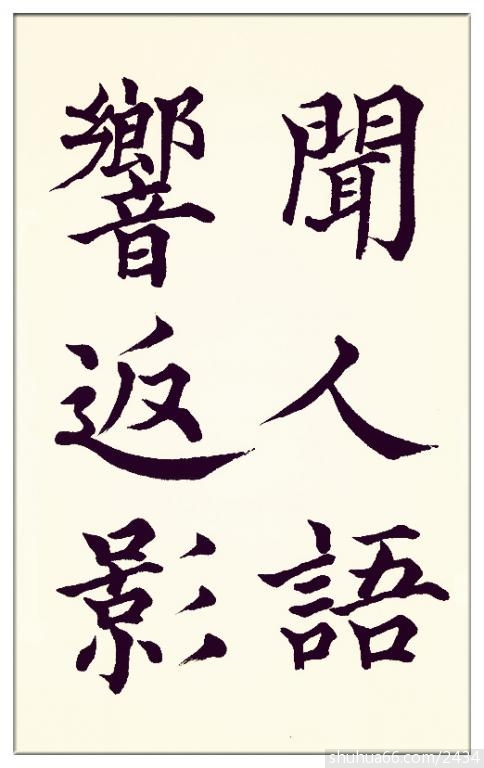 聞人語
響返影
shuhua66.com/2434